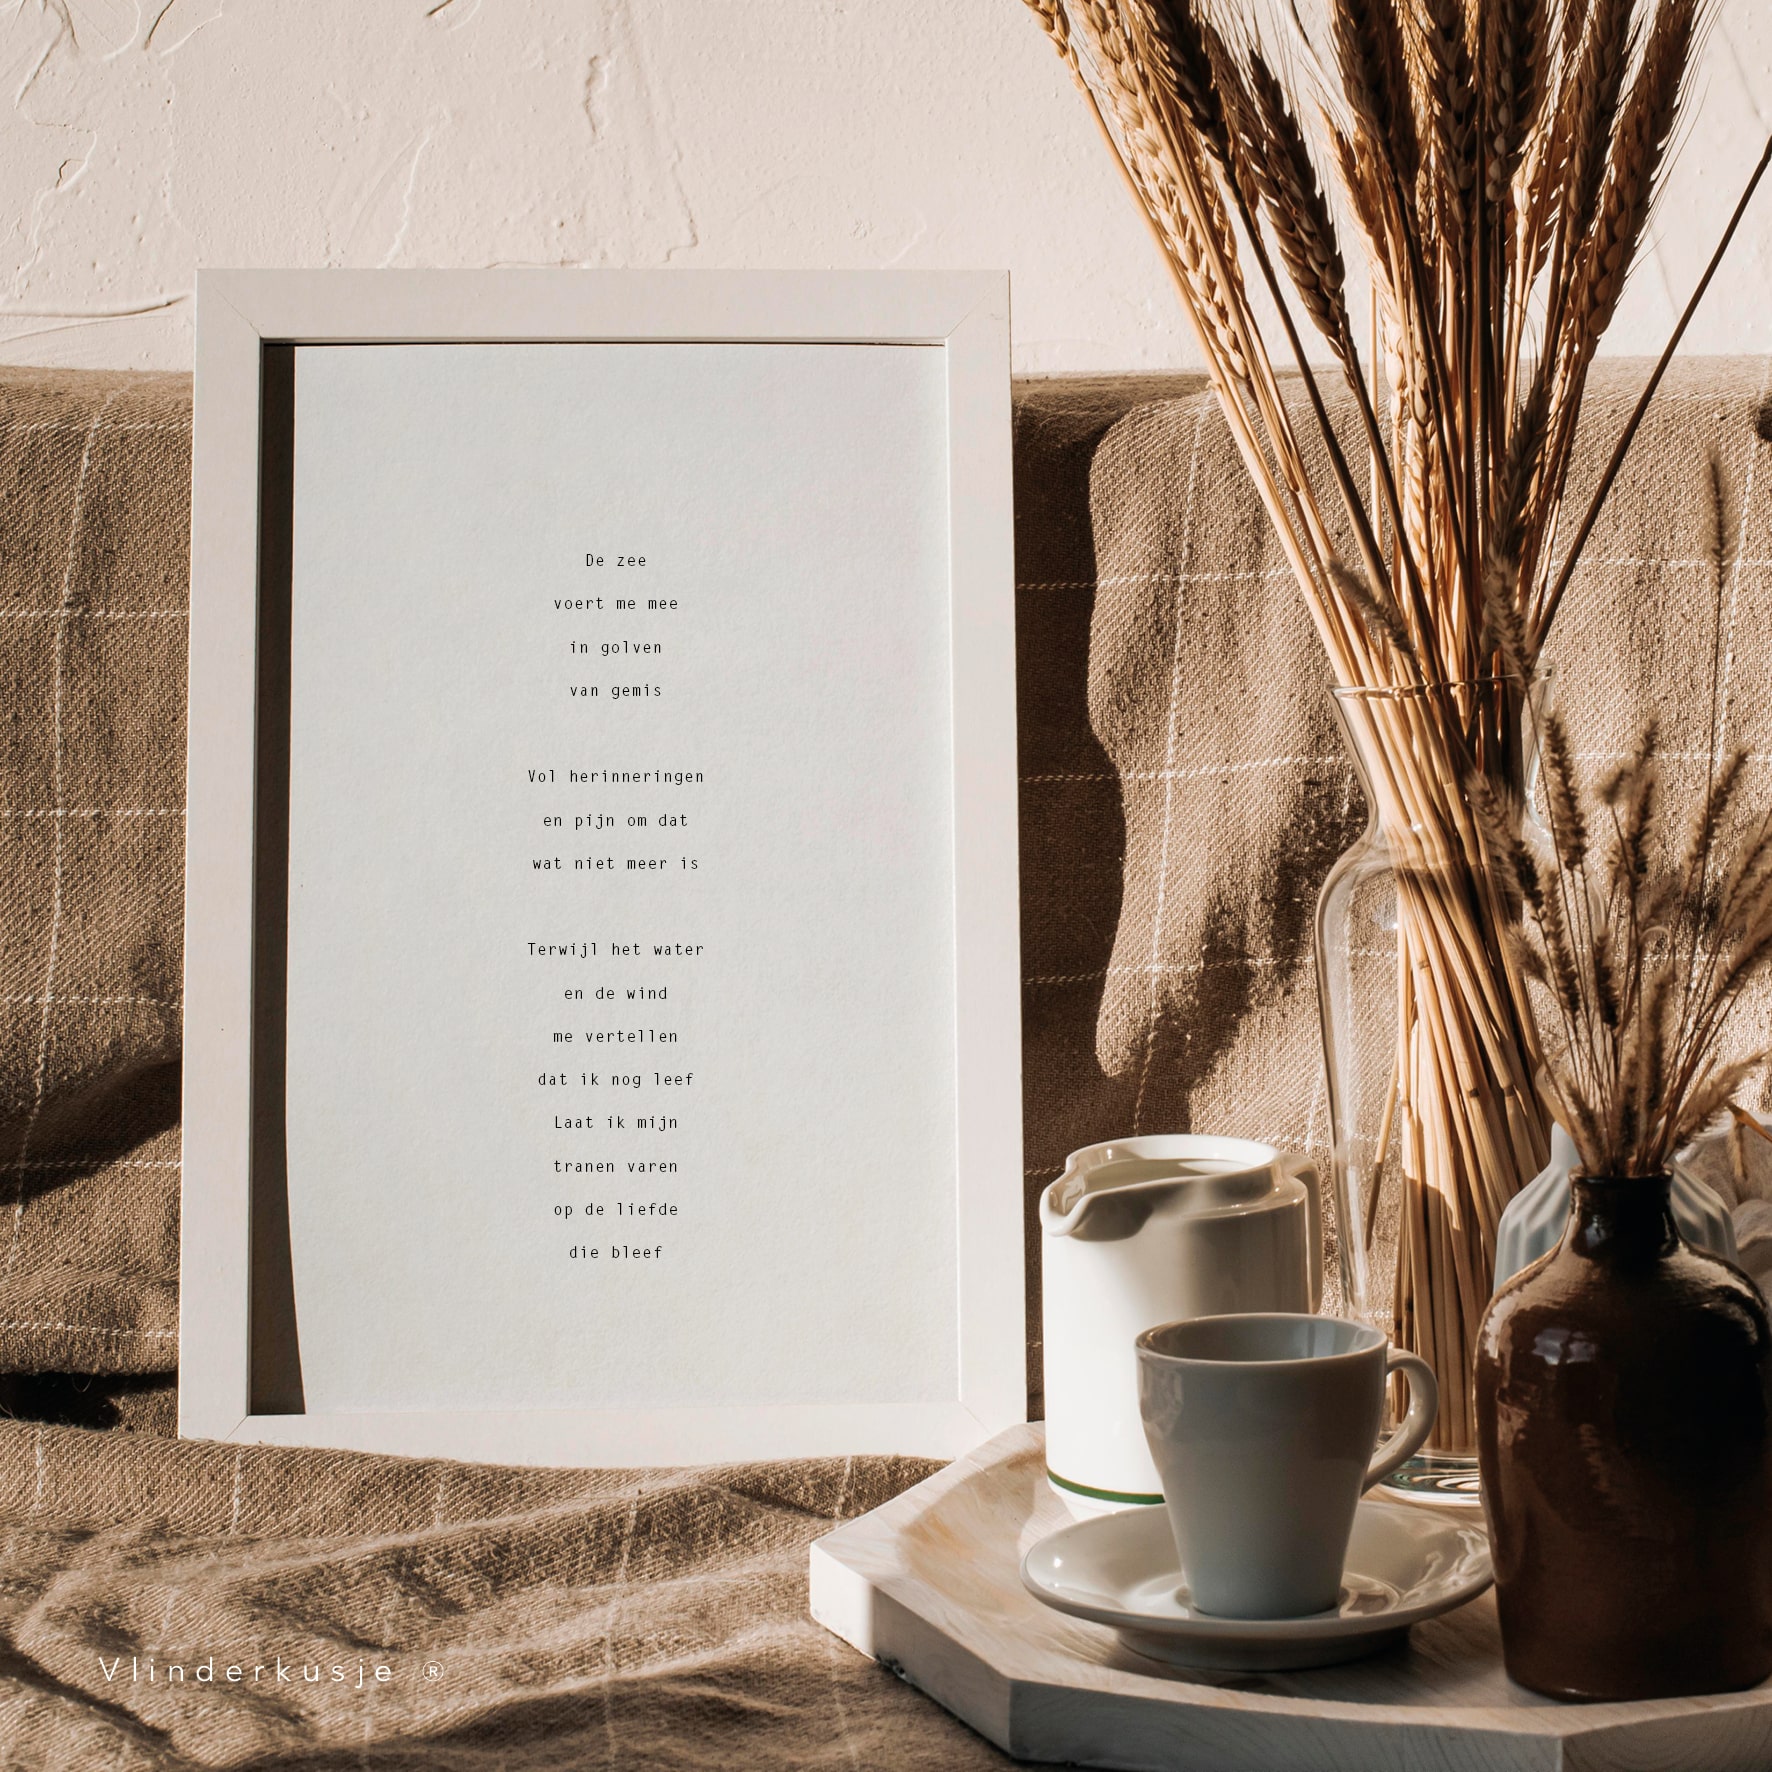 De zee
voert me mee
in golven
van gemis
Vol herinneringen
en pijn om dat
wat niet meer is
Terwijl het water
en de wind
me vertellen
dat ik nog leef
Laat ik mijn
tranen varen
op de liefde
die bleef
Vlinderkusje ®